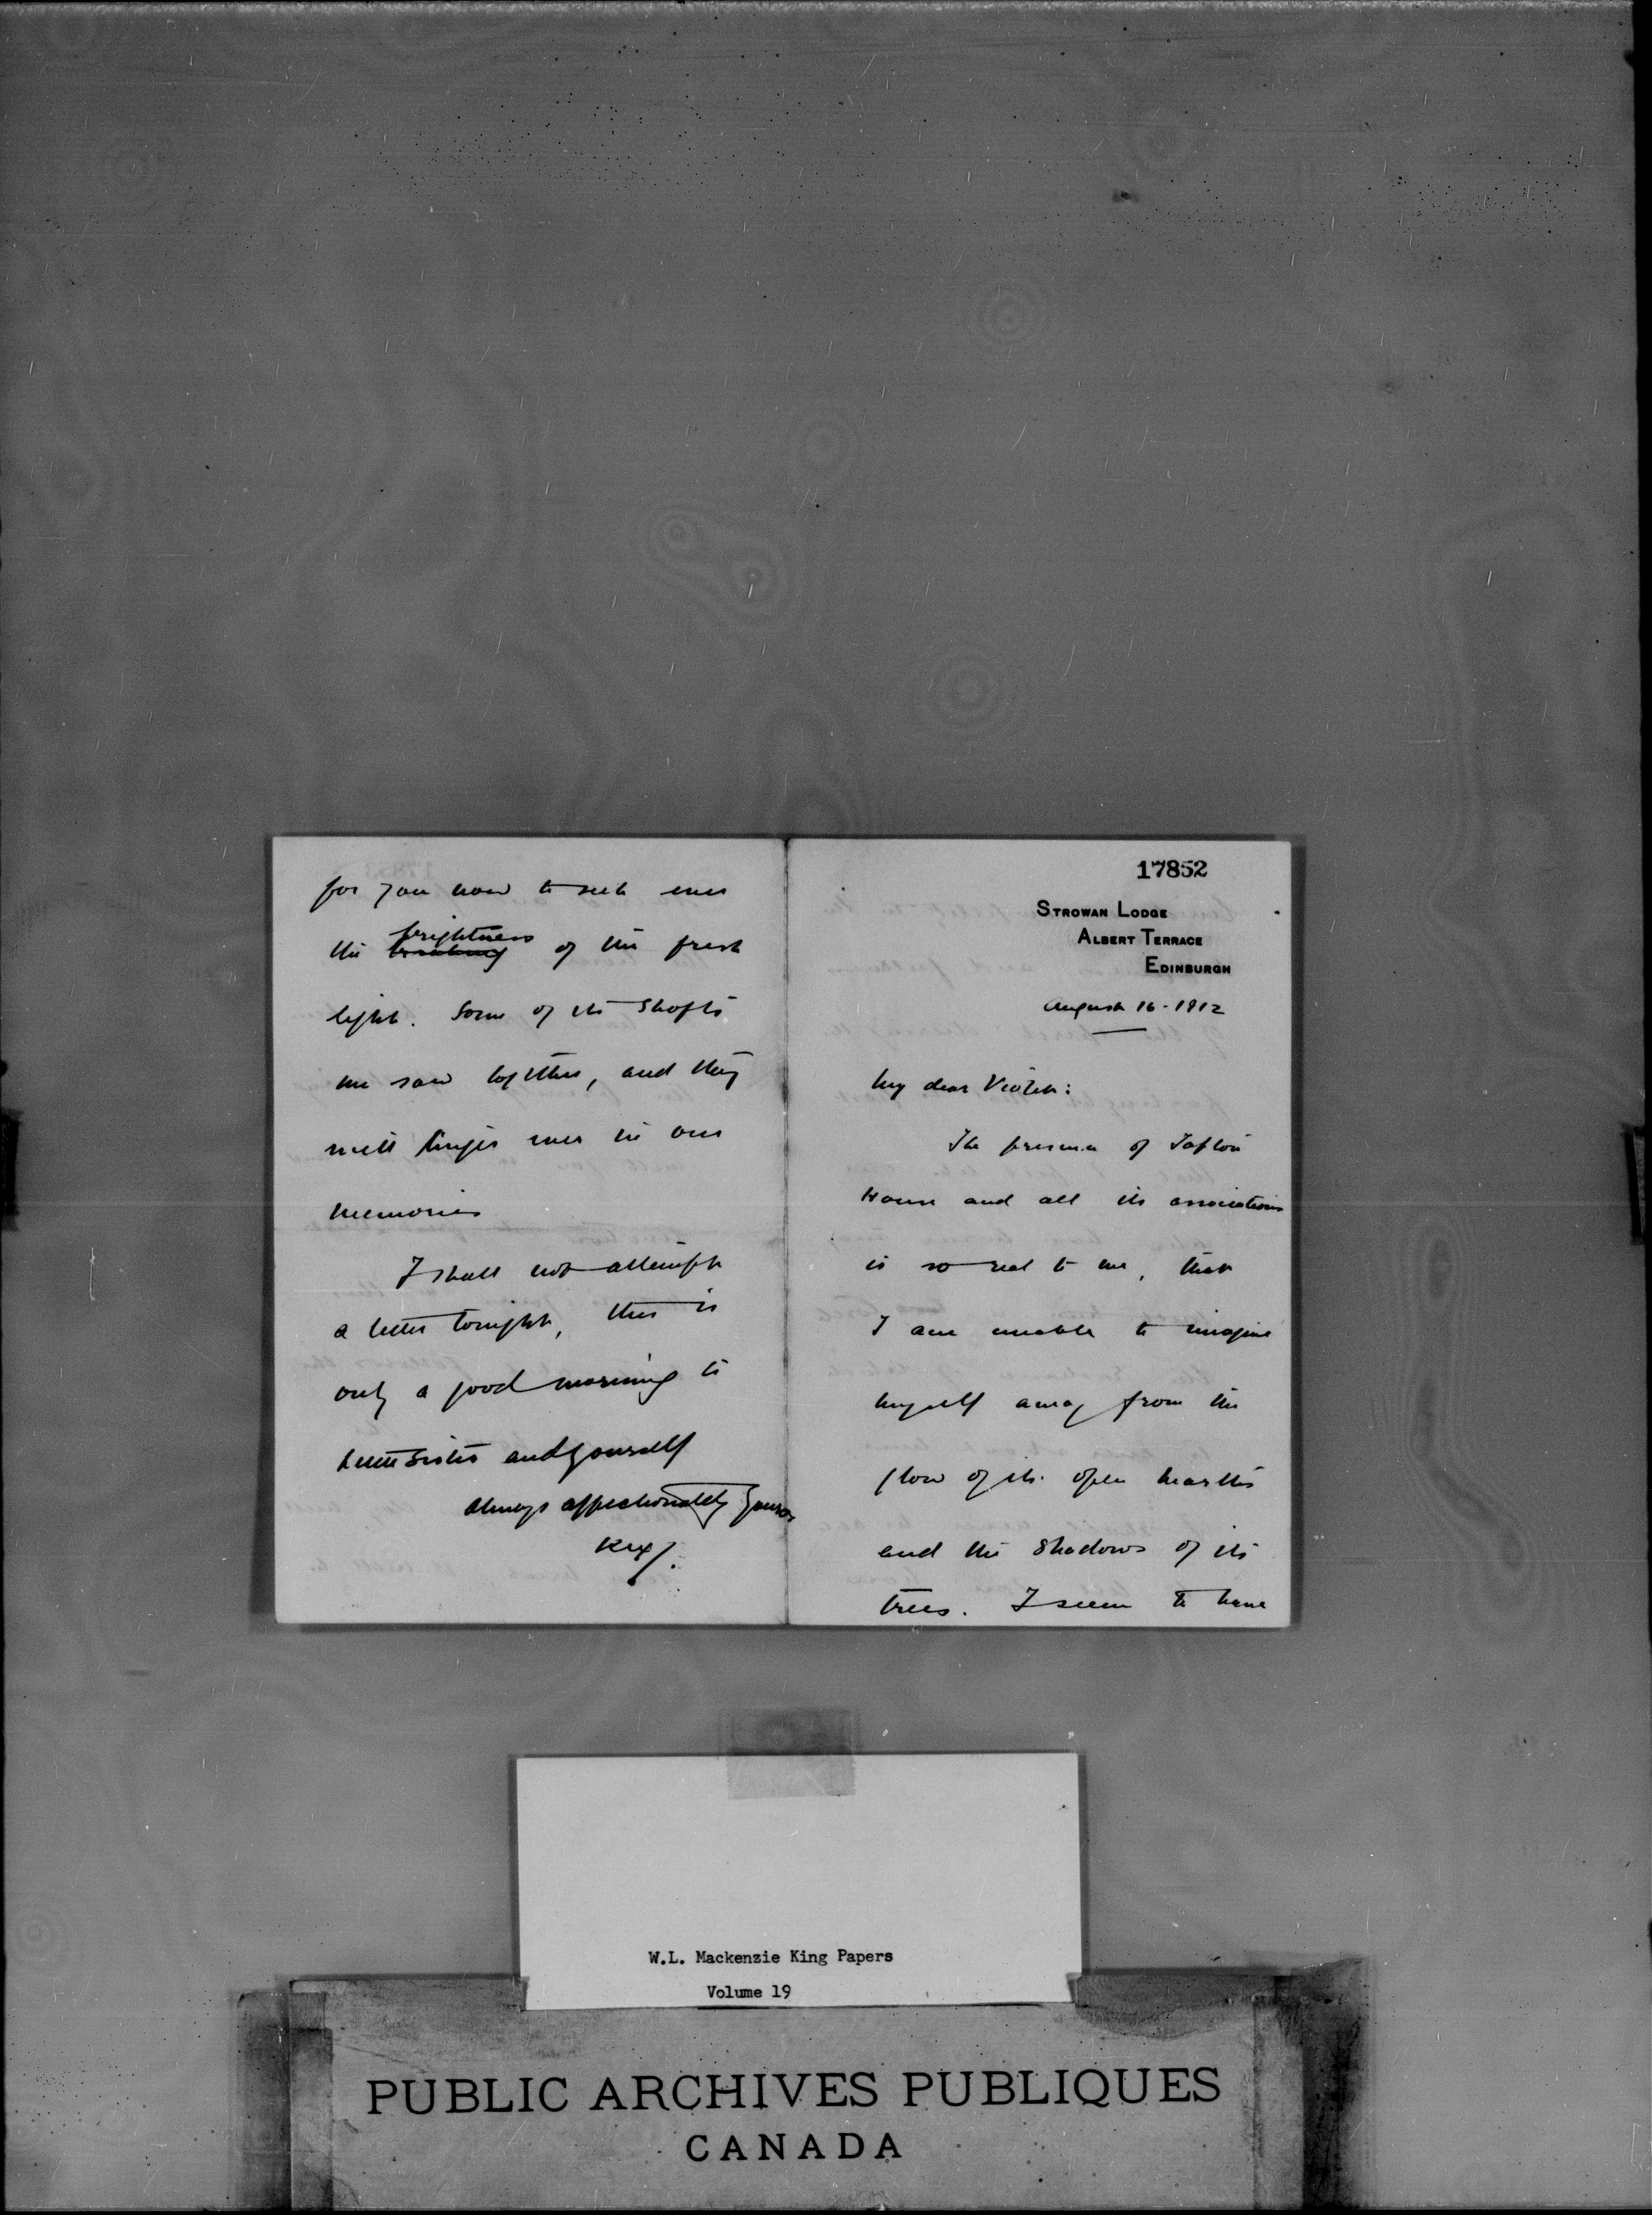 for you now to seek ever
the brightness of the fresh
light. Some of its shafts
we saw together, and they
will linger ever in our
memories
I shall not attempt
a letter tonight, this is
only a good morning to
sister and yourself
Always affectionately yours,
Rex/.
17852
STROWAN LODGE
ALBERT TERRACE
EDINBURGH
August 16 - 1912
My dear Violet:
The presence of
House and all its associations
is so real to me, that
I am unable to imagine
myself away from the
glow of its open hearths
and the shadows of its
trees. I seem to have
W.L. Mackenzie King Papers
Volume 19
PUBLIC ARCHIVES PUBLIQUES
CANADA